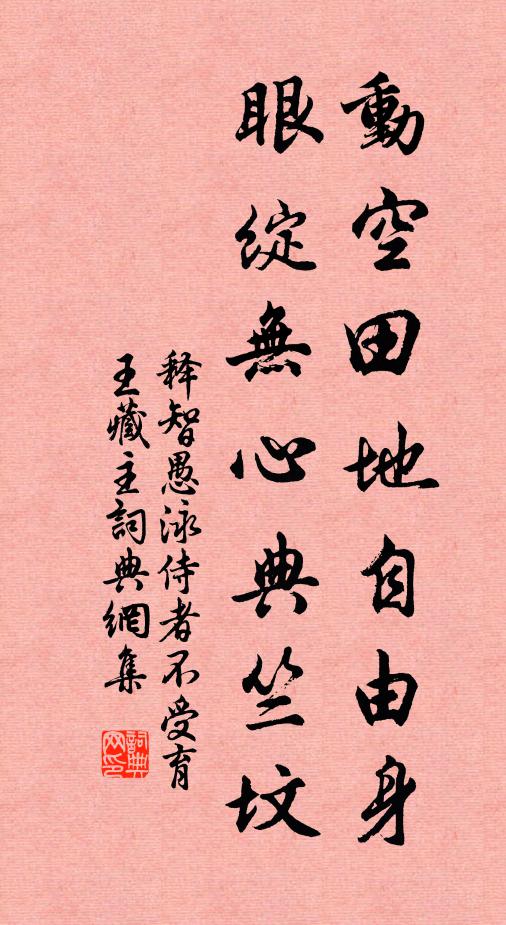 動空田地自由身
眼綻無心典竺坟
释智愚泳侍者不受育
王藏主詞典網集
詞典
网印